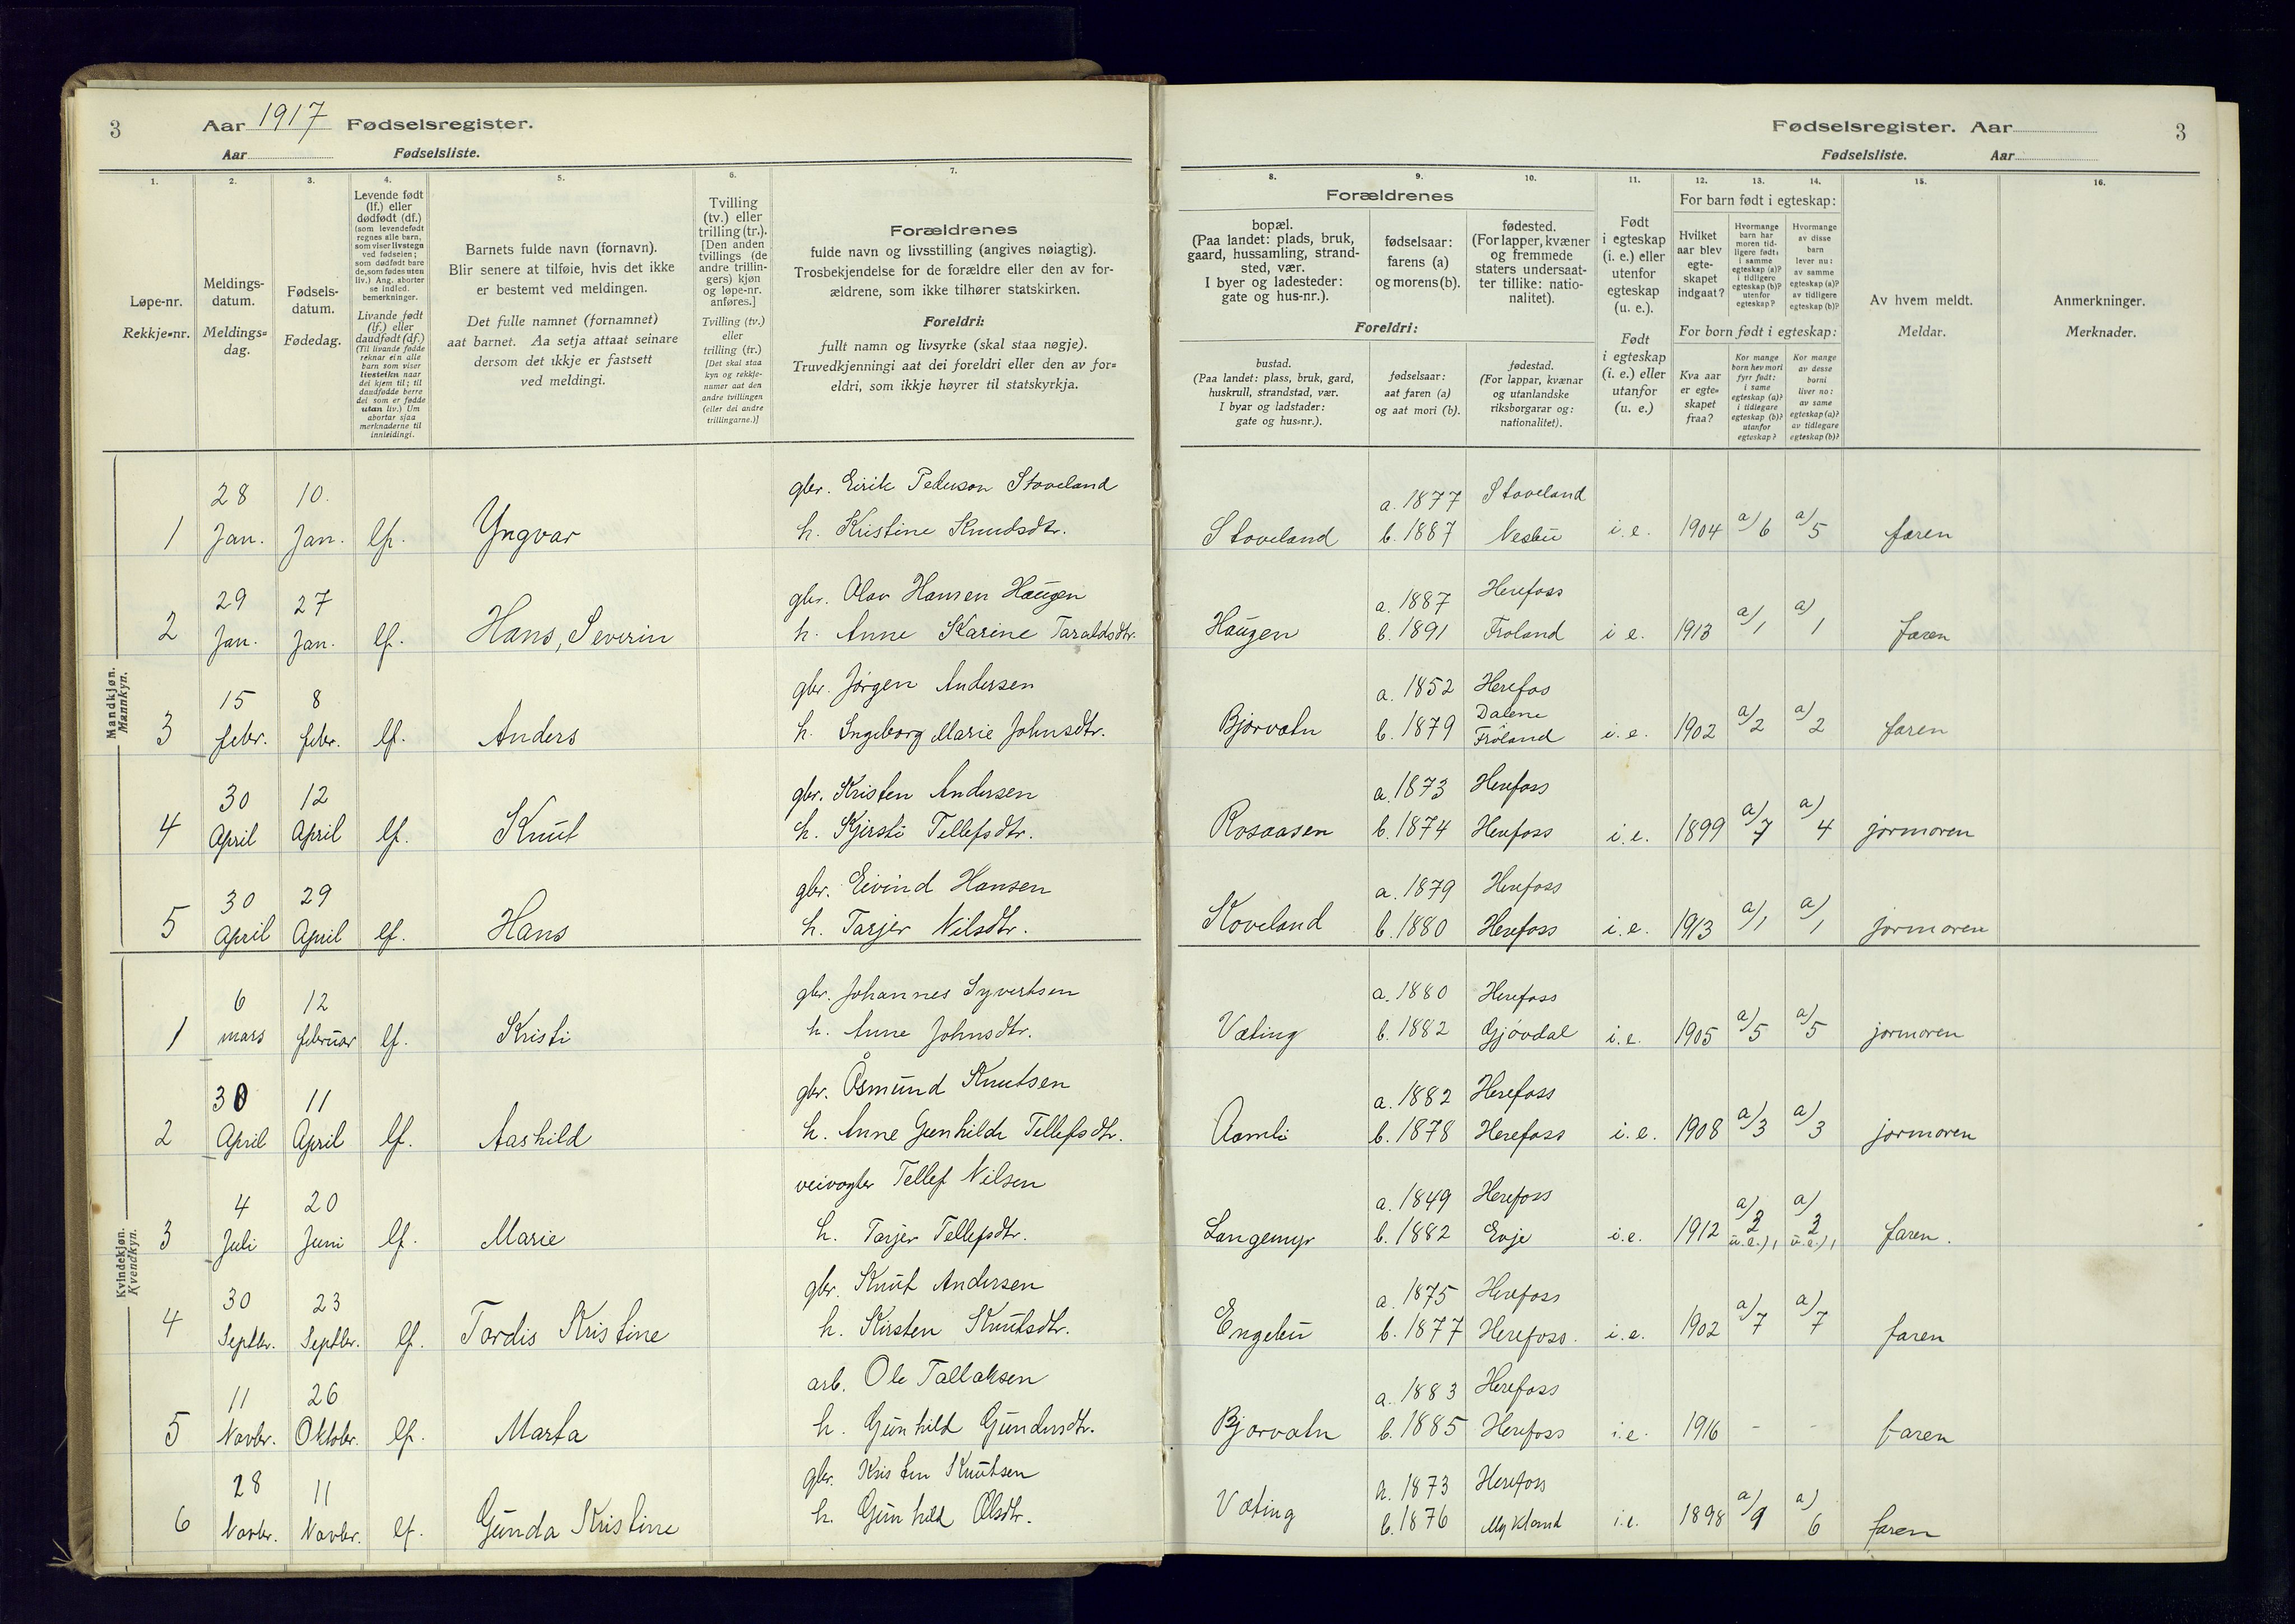 3
Aar 1917 Fødselsregister.
Aar Fødselsliste.
Fødselsregister. Aar
3
Fødselsliste. Aar
1.
2.
3.
4.
5.
6.
7.
8.
9.
10.
11.
12.
13.
14.
15.
16.
Løpe-nr.
Rekkje-nr.
Meldings-
datum.
Meldings-
dag.
Fødsels-
datum.
Fødedag.
Levende født
(lf.) eller
dødfødt (df.)
(som levendefødt
regnes alle barn,
som viser livstegn
ved fødselen;
som dødfødt bare
de, som fødes uten
liv.) Ang. aborter
se indled.
bemerkninger.
Livande født
(lf.) eller
daudfødt (df.)
(Til livande fødde
reknar ein alle
barn som viser
livsteikn naar
dei kjem til; til
daudfødde berre
dei som er fødde
utan liv.) Um
abortar sjaa
merknaderne til
innleidingi.
Barnets fulde navn (fornavn).
Blir senere at tilføie, hvis det ikke
er bestemt ved meldingen.
Det fulle namnet (fornamnet)
aat barnet. Aa setja attaat seinare
dersom det ikkje er fastsett
ved meldingi.
Tvilling
(tv.) eller
trilling (tr.).
[Den anden
tvillings (de
andre trillin-
gers) kjøn
og løpe-nr.
anføres.]
Tvilling (tv.)
eller
trilling (tr.)
[Det skal staa
kyn og rekkje-
numer aat den
andre tvillingen
(eller dei andre
trillingarne.)]
Forældrenes
fulde navn og livsstilling (angives nøiagtig).
Trosbekjendelse for de forældre eller den av for-
ældrene, som ikke tilhører statskirken.
Foreldri:
fullt namn og livsyrke (skal staa nøgje).
Truvedkjenningi aat dei foreldri eller den av for-
eldri, som ikkje høyrer til statskyrkja.
Forældrenes
bopæl.
(Paa landet: plads, bruk,
gaard, hussamling, strand-
sted, vær.
I byer og ladesteder:
gate og hus-nr.).
fødselsaar:
farens (a)
og morens (b).
fødested.
(For lapper, kvæner
og fremmede
staters undersaat-
ter tillike: natio-
nalitet).
Foreldri:
bustad.
(Paa landet: plass, bruk, gard,
huskrull, strandstad, vær.
I byar og ladstader:
gate og hus-nr.).
fødselsaar:
aat faren (a)
og aat mori (b).
fødestad.
(For lappar, kvænar
og utanlandske
riksborgarar og:
nationalitet).
Født
i egteskap
(i. e.) eller
utenfor
egteskap
(u. e.).
Født
i egteskap
(i. e.) eller
utanfor
(u. e.)
For barn født i egteskap:
Hvilket
aar blev
egte-
skapet
indgaat?
Hvormange
barn har
moren tid-
ligere født:
i samme
egteskap (a)?
i tidligere
egteskap (b)?
utenfor
egteskap?
Hvormange
av disse
barn
lever nu:
av samme
egteskap (a)?
av tidligere
egteskap (b)?
For born født i egteskap:
Kva aar
er egte-
skapet
fraa?
Kor mange
born hev mori
fyrr født:
i same
egteskap (a)?
i tidlegare
egteskap (b)?
utanfor
egteskap?
Kor mange
av desse
borni
liver no:
av same
egteskap (a)?
av tidlegare
egteskap (b)?
Av hvem meldt.
Meldar.
Anmerkninger.
Merknader.
Mandkjøn.
Mannkyn.
28 10. gbr. Eirik Pederson Stoveland a. 1877 Stoveland
1 Jan. Jan. lf. Yngvar h. Kristine Knudsdtr. Stoveland b. 1887 Nesbu i. e. 1904 a/6 a/5 faren
29 27 gbr. Olav Hansen Haugen a. 1887 Herefoss
2 Jan. Jan. lf. Hans, Severin h. Anne Karine Taraldsdtr. Haugen b. 1891 Froland i e. 1913 a/1 a/1 faren
15 8 gbr. Jørgen Andersen a. 1852 Herefos
3 febr. febr. lf. Anders h. Ingeborg Marie Johnsdtr. Bjorvatn b. 1879 Dalene Froland i. e. 1902 a/2 a/2 faren
30 12 gbr. Kristen Andersen a. 1873 Herefoss
4 April April lf. Knut h. Kjersti Tellefsdtr. Rosaasen b. 1874 Herefoss i. e. 1899 a/7 a/4 jormoren
30 29 gbr. Eivind Hansen a. 1879 Herefoss
5 April April lf. Hans h. Tarjer Nilsdtr. Skoveland b. 1880 Herefoss i. e. 1913 a/1 a/1 jormoren
Kvindekjøn.
Kvendkyn.
6 12 gbr. Johannes Syvertsen a. 1880 Herefoss
1 mars februar lf. Kristi h. Anne Johnsdtr. Væting b. 1882 Gjøvdal i. e. 1905 a/5 a/5 jormoren
30 11 gbr. Åsmund Knutsen a. 1882 Herefoss
2 April April lf. Aashild h. Anne Gunhilde Tellefsdtr. Aamli b. 1878 Herefoss i. e. 1908 a/3 a/3 jormoren
4 20 veivogter Tellef Nilsen a. 1849 Herefoss
3 Juli Juni lf. Marie h. Tarjer Tellefsdtr. Langemyr b. 1882 Evje i. e. 1912 a/2 u.e.)1 a/2 u.e.)1 faren.
30 23 gbr. Knut Andersen a. 1875 Herefoss
4 Septbr. Septbr. lf. Tordis Kristine h. Kirsten Knutsdtr. Engebu b. 1877 Herefoss. i. e. 1902 a/7 a/7 faren
11 26 arb. Ole Tallaksen a. 1883 Herefoss
5 Novbr. Oktobr. lf. Marta h. Gunhild Gundersdtr. Bjorvatn b. 1885 Herefoss i. e. 1916 - - faren
28 11 gbr. Kristen Knutsen a. 1873 Herefoss
6 Novbr. Novbr. lf. Gunda Kristine h. Gunhild Olsdtr. Væting b. 1876 Mykland i. e. 1898 a/9 a/6 faren